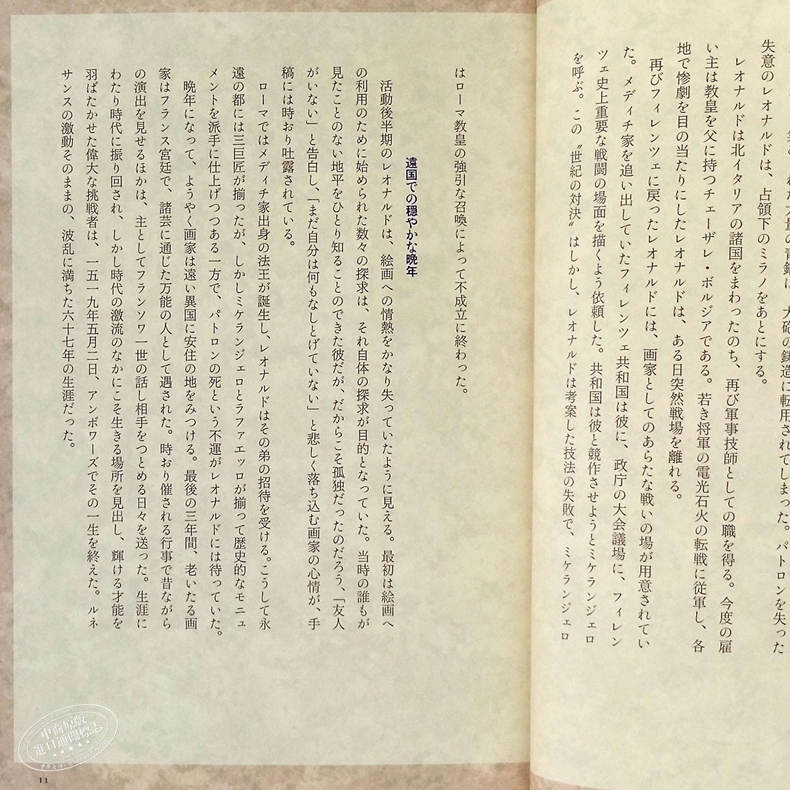 大砲の鋳造に転用されてしまった。パトロンを失った
失意のレオナルドは、占領下のミラノをあとにする。
レオナルドは北イタリアの諸国をまわったのち、再び軍事技師としての職を得る。今度の雇
い主は教皇を父に持つチェーザレ・ボルジアである。若き将軍の電光石火の転戦に従軍し、各
地で惨劇を目の当たりにしたレオナルドは、ある日突然戦場を離れる。
再びフィレンツェに戻ったレオナルドには、画家としてのあらたな戦いの場が用意されてい
た。メディチ家を追い出していたフィレンツェ共和国は彼に、政庁の大会議場に、フィレン
ツェ史上重要な戦闘の場面を描くよう依頼した。共和国は彼と競作させようとミケランジェロ
を呼ぶ。この〝世紀の対決〟はしかし、レオナルドは考案した技法の失敗で、ミケランジェロ
はローマ教皇の強引な召喚によって不成立に終わった。
遠国での穏やかな晩年
活動後半期のレオナルドは、絵画への情熱をかなり失っていたように見える。最初は絵画へ
の利用のために始められた数々の探求は、それ自体の探求が目的となっていた。当時の誰もが
見たことのない地平をひとり知ることのできた彼だが、だからこそ孤独だったのだろう、「友人
がいない」と告白し、「まだ自分は何もなしとげていない」と悲しく落ち込む画家の心情が、手
稿には時おり吐露されている。
ローマではメディチ家出身の法王が誕生し、レオナルドはその弟の招待を受ける。こうして永
遠の都には三巨匠が揃ったが、しかしミケランジェロとラファエッロが揃って歴史的なモニュ
メントを派手に仕上げつつある一方で、パトロンの死という不運がレオナルドには待っていた。
晩年になって、ようやく画家は遠い異国に安住の地をみつける。最後の三年間、老いたる画
家はフランス宮廷で、諸芸に通じた万能の人として遇された。時おり催される行事で昔ながら
の演出を見せるほかは、主としてフランソワ一世の話し相手をつとめる日々を送った。生涯に
わたり時代に振り回され、しかし時代の激流のなかにこそ生きる場所を見出し、輝ける才能を
羽ばたかせた偉大な挑戦者は、一五一九年五月二日、アンボワーズでその一生を終えた。ルネ
サンスの激動そのままの、波乱に満ちた六十七年の生涯だった。
11
中商原版
進口通關標志